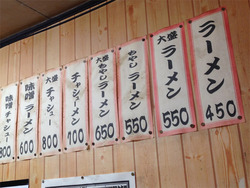 ラーメン
450
大盛 ラーメン
550
もやし ラーメン
550
大盛 もやしラーメン
650
チャーシューメン
700
大盛 チャーシュー
800
味噌 ラーメン
600
味噌 チャーシュー
800